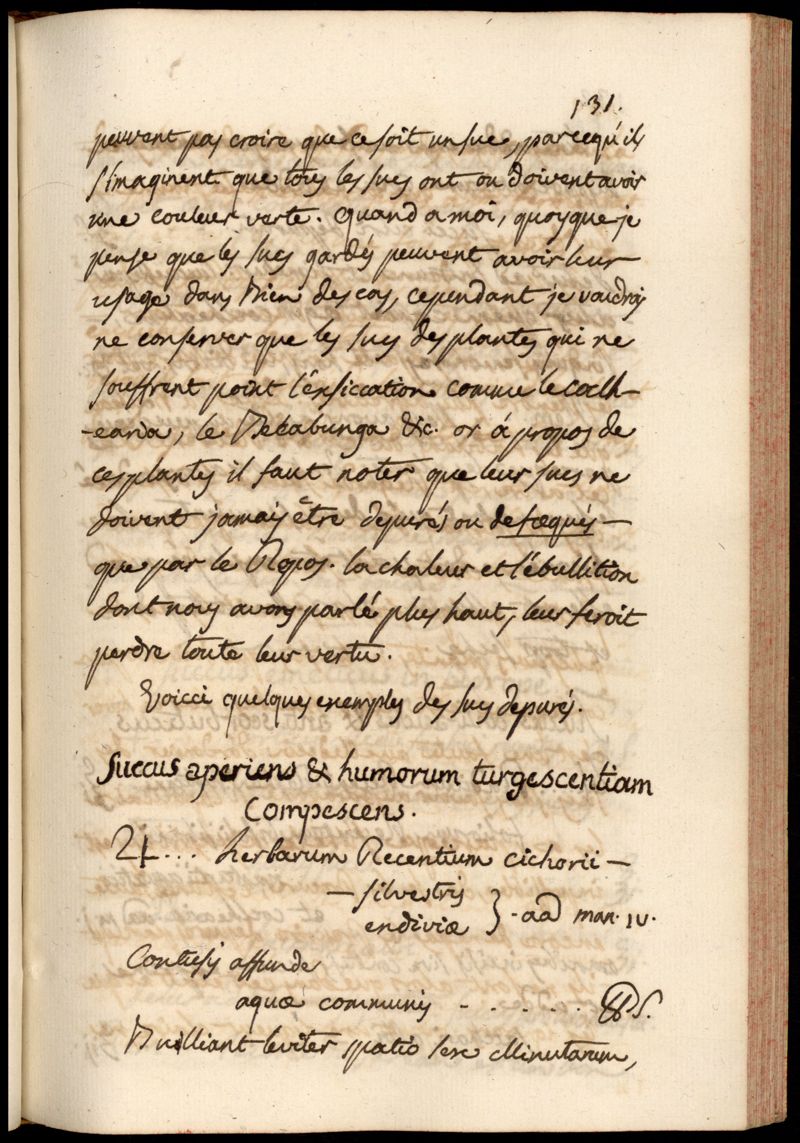 131.
peuvent pas croire que ce soit un suc, parcequ'ils
s'imaginent que tous les sucs ont ou doivent avoir
une couleur verte. quand a moi, quoyque je
pense que les sucs gardés peuvent avoir leur
usage dans bien des cas, cependant je vaudrois
ne conserver que les sucs des plantes qui ne
souffrent point l'éxsiccation comme le coch-
-earia, le Bécabunga &c. or á propos de
ces plantes il faut noter que leur sucs ne
doivent jamais être depurés ou defæqués —
que par le Repos. la chaleur et l'ébullition
dont nous avons parlé plus haut, leur feroit
perdre toute leur vertu.
Voicci quelques exemples des sucs depurés.
Succus aperiens & humorum turgescentiam
Compescens.
♃ ... herbarum Recentium cichorii —
— silvestris
endiviæ } - aa man. IV.
Contusis affunde
aquæ communis - - - - - ℔S.
Bulliant leviter spatio sex Minutarum,